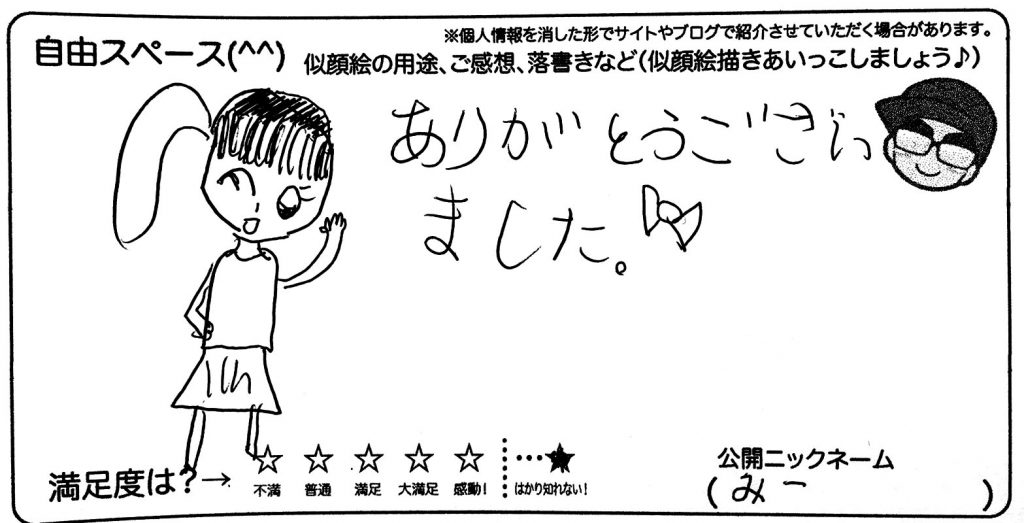 ※個人情報を消した形でサイトやブログで紹介させていただく場合があります。
自由スペース(^^) 似顔絵の用途、ご感想、落書きなど(似顔絵描きあいっこしましょう♪)
ありがとうございました。
ました。
満足度は?→ ☆ ☆ ☆ ☆ ☆ …★
不満 普通 満足 大満足 感動! はかり知れない!
公開ニックネーム
(みー)